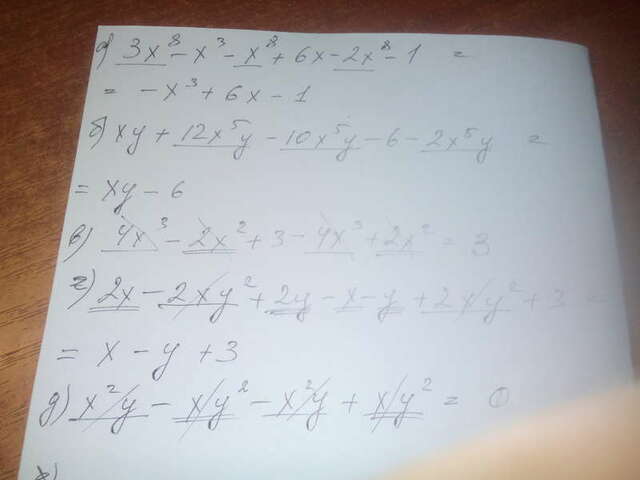 а) 3x⁸ - x³ - x⁸ + 6x - 2x⁸ - 1 =
= - x³ + 6x - 1
б) xy + 12x⁵y - 10x⁵y - 6 - 2x⁵y =
= xy - 6
в) 4x³ - 2x² + 3 - 4x³ + 2x² = 3
г) 2x - 2xy² + 2y - x - y + 2xy² + 3 =
= x - y + 3
д) x²y - xy² - x²y + xy² = 0